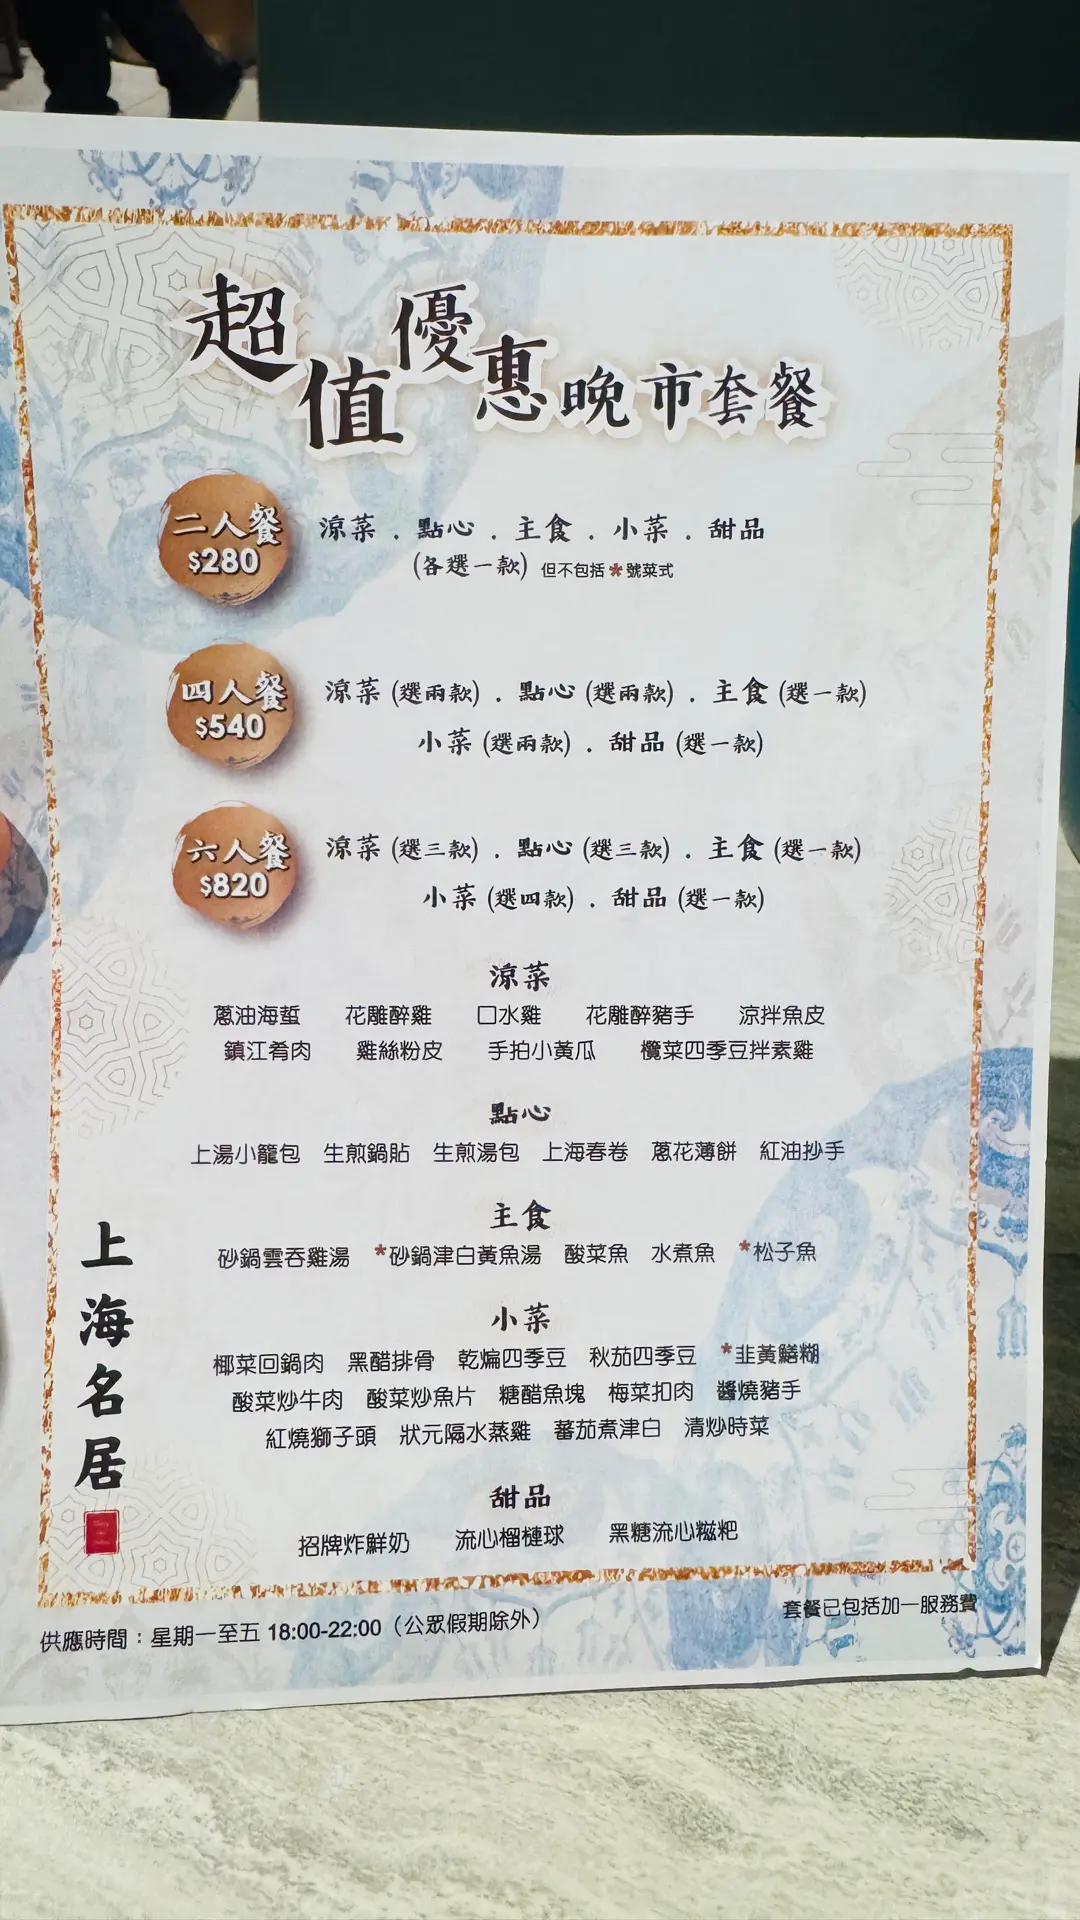 超值優惠晚市套餐
二人餐
$280
涼菜 . 點心 . 主食 . 小菜 . 甜品
(各選一款) 但不包括*號菜式
四人餐
$540
涼菜 (選兩款) . 點心 (選兩款) . 主食 (選一款)
小菜 (選兩款) . 甜品 (選一款)
六人餐
$820
涼菜 (選三款) . 點心 (選三款) . 主食 (選一款)
小菜 (選四款) . 甜品 (選一款)
涼菜
蔥油海蜇 花雕醉雞 口水雞 花雕醉豬手 涼拌魚皮
鎮江肴肉 雞絲粉皮 手拍小黃瓜 欖菜四季豆拌素雞
點心
上湯小籠包 生煎鍋貼 生煎湯包 上海春卷 蔥花薄餅 紅油抄手
主食
砂鍋雲吞雞湯 *砂鍋津白黃魚湯 酸菜魚 水煮魚 *松子魚
小菜
椰菜回鍋肉 黑醋排骨 乾煸四季豆 秋茄四季豆 *韭黃鱔糊
酸菜炒牛肉 酸菜炒魚片 糖醋魚塊 梅菜扣肉 醬燒豬手
紅燒獅子頭 狀元隔水蒸雞 蕃茄煮津白 清炒時菜
甜品
招牌炸鮮奶 流心榴槤球 黑糖流心糍粑
上海名居
供應時間：星期一至五 18:00-22:00（公眾假期除外）
套餐已包括加一服務費